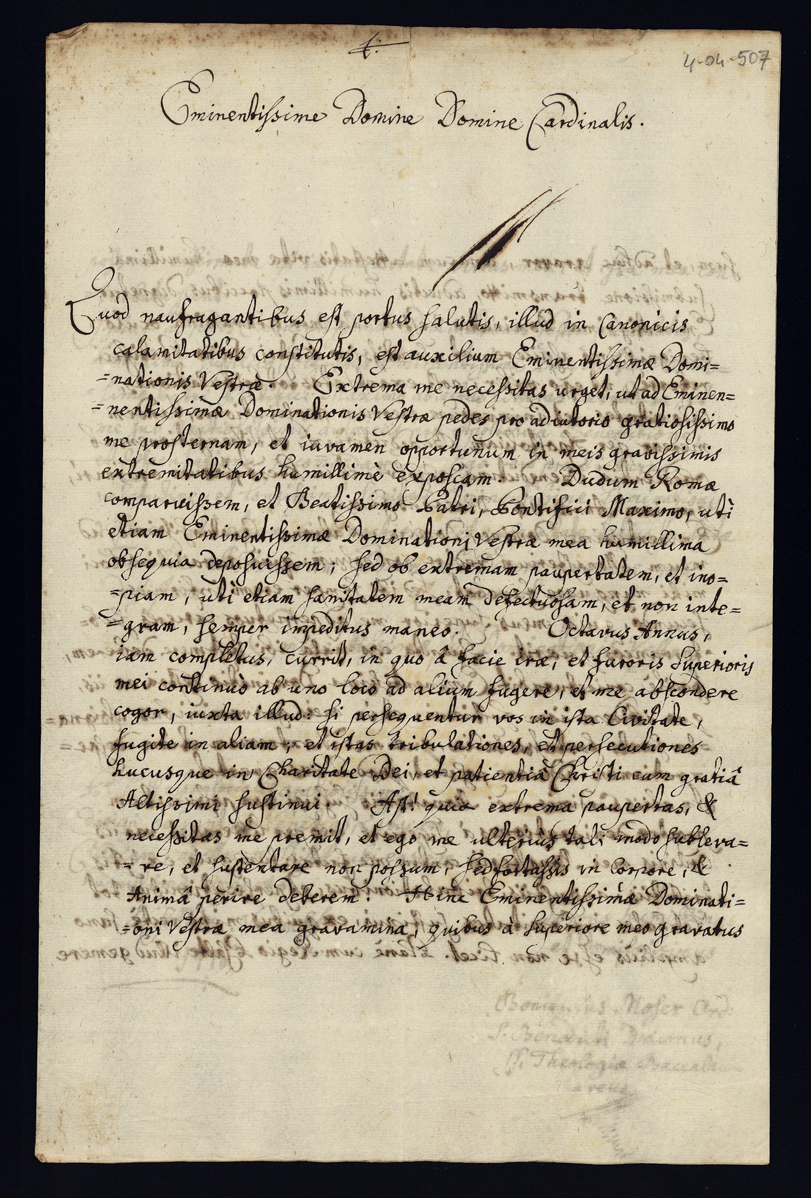 4-04-507
Eminentissime Domine Domine Cardinalis.
Quod naufragantibus est portus salutis, illud in Canonicis
calamitatibus constitutis, est auxilium Eminentissimæ Domi=
=nationis Vestræ. Extrema me necessitas urget, ut ad Eminen=
=nentissimæ Dominationis Vestræ pedes pro adiutorio gratiosissimo
me prosternam, et iuvamen opportunum in meis gravissimis
extremitatibus humillimè exposcam. Dudum Romæ
comparuissem, et Beatissimo Patri, Pontifici Maximo, uti
etiam Eminentissimæ Dominationi Vestræ mea humillima
obsequia deposuissem; sed ob extremam paupertatem, et ino=
=piam, uti etiam sanitatem meam defectuosam, et non inte=
=gram, semper impeditus maneo. Octavus Annus,
iam completus, currit, in quo â facie iræ, et furoris Superioris
mei continuò ab uno loco ad alium fugere, et me abscondere
cogor, iuxta illud: si persequentur vos in ista Civitate,
fugite in aliam; et istas tribulationes, et persecutiones
hucusque in Charitate Dei, et patientiâ Christi cum gratiâ
Altissimi sustinui. Ast quia extrema paupertas, &
necessitas me premit, et ego me ulterius tali modo subleva=
=re, et sustentare non possum, sed fortassis in Corpore, &
Animâ perire deberem: Hinc Eminentissimæ Dominati=
=oni Vestræ mea gravamina, quibus â Superiore meo gravatus
Moser Ord:
S. Benedicti
SS. Theologiæ